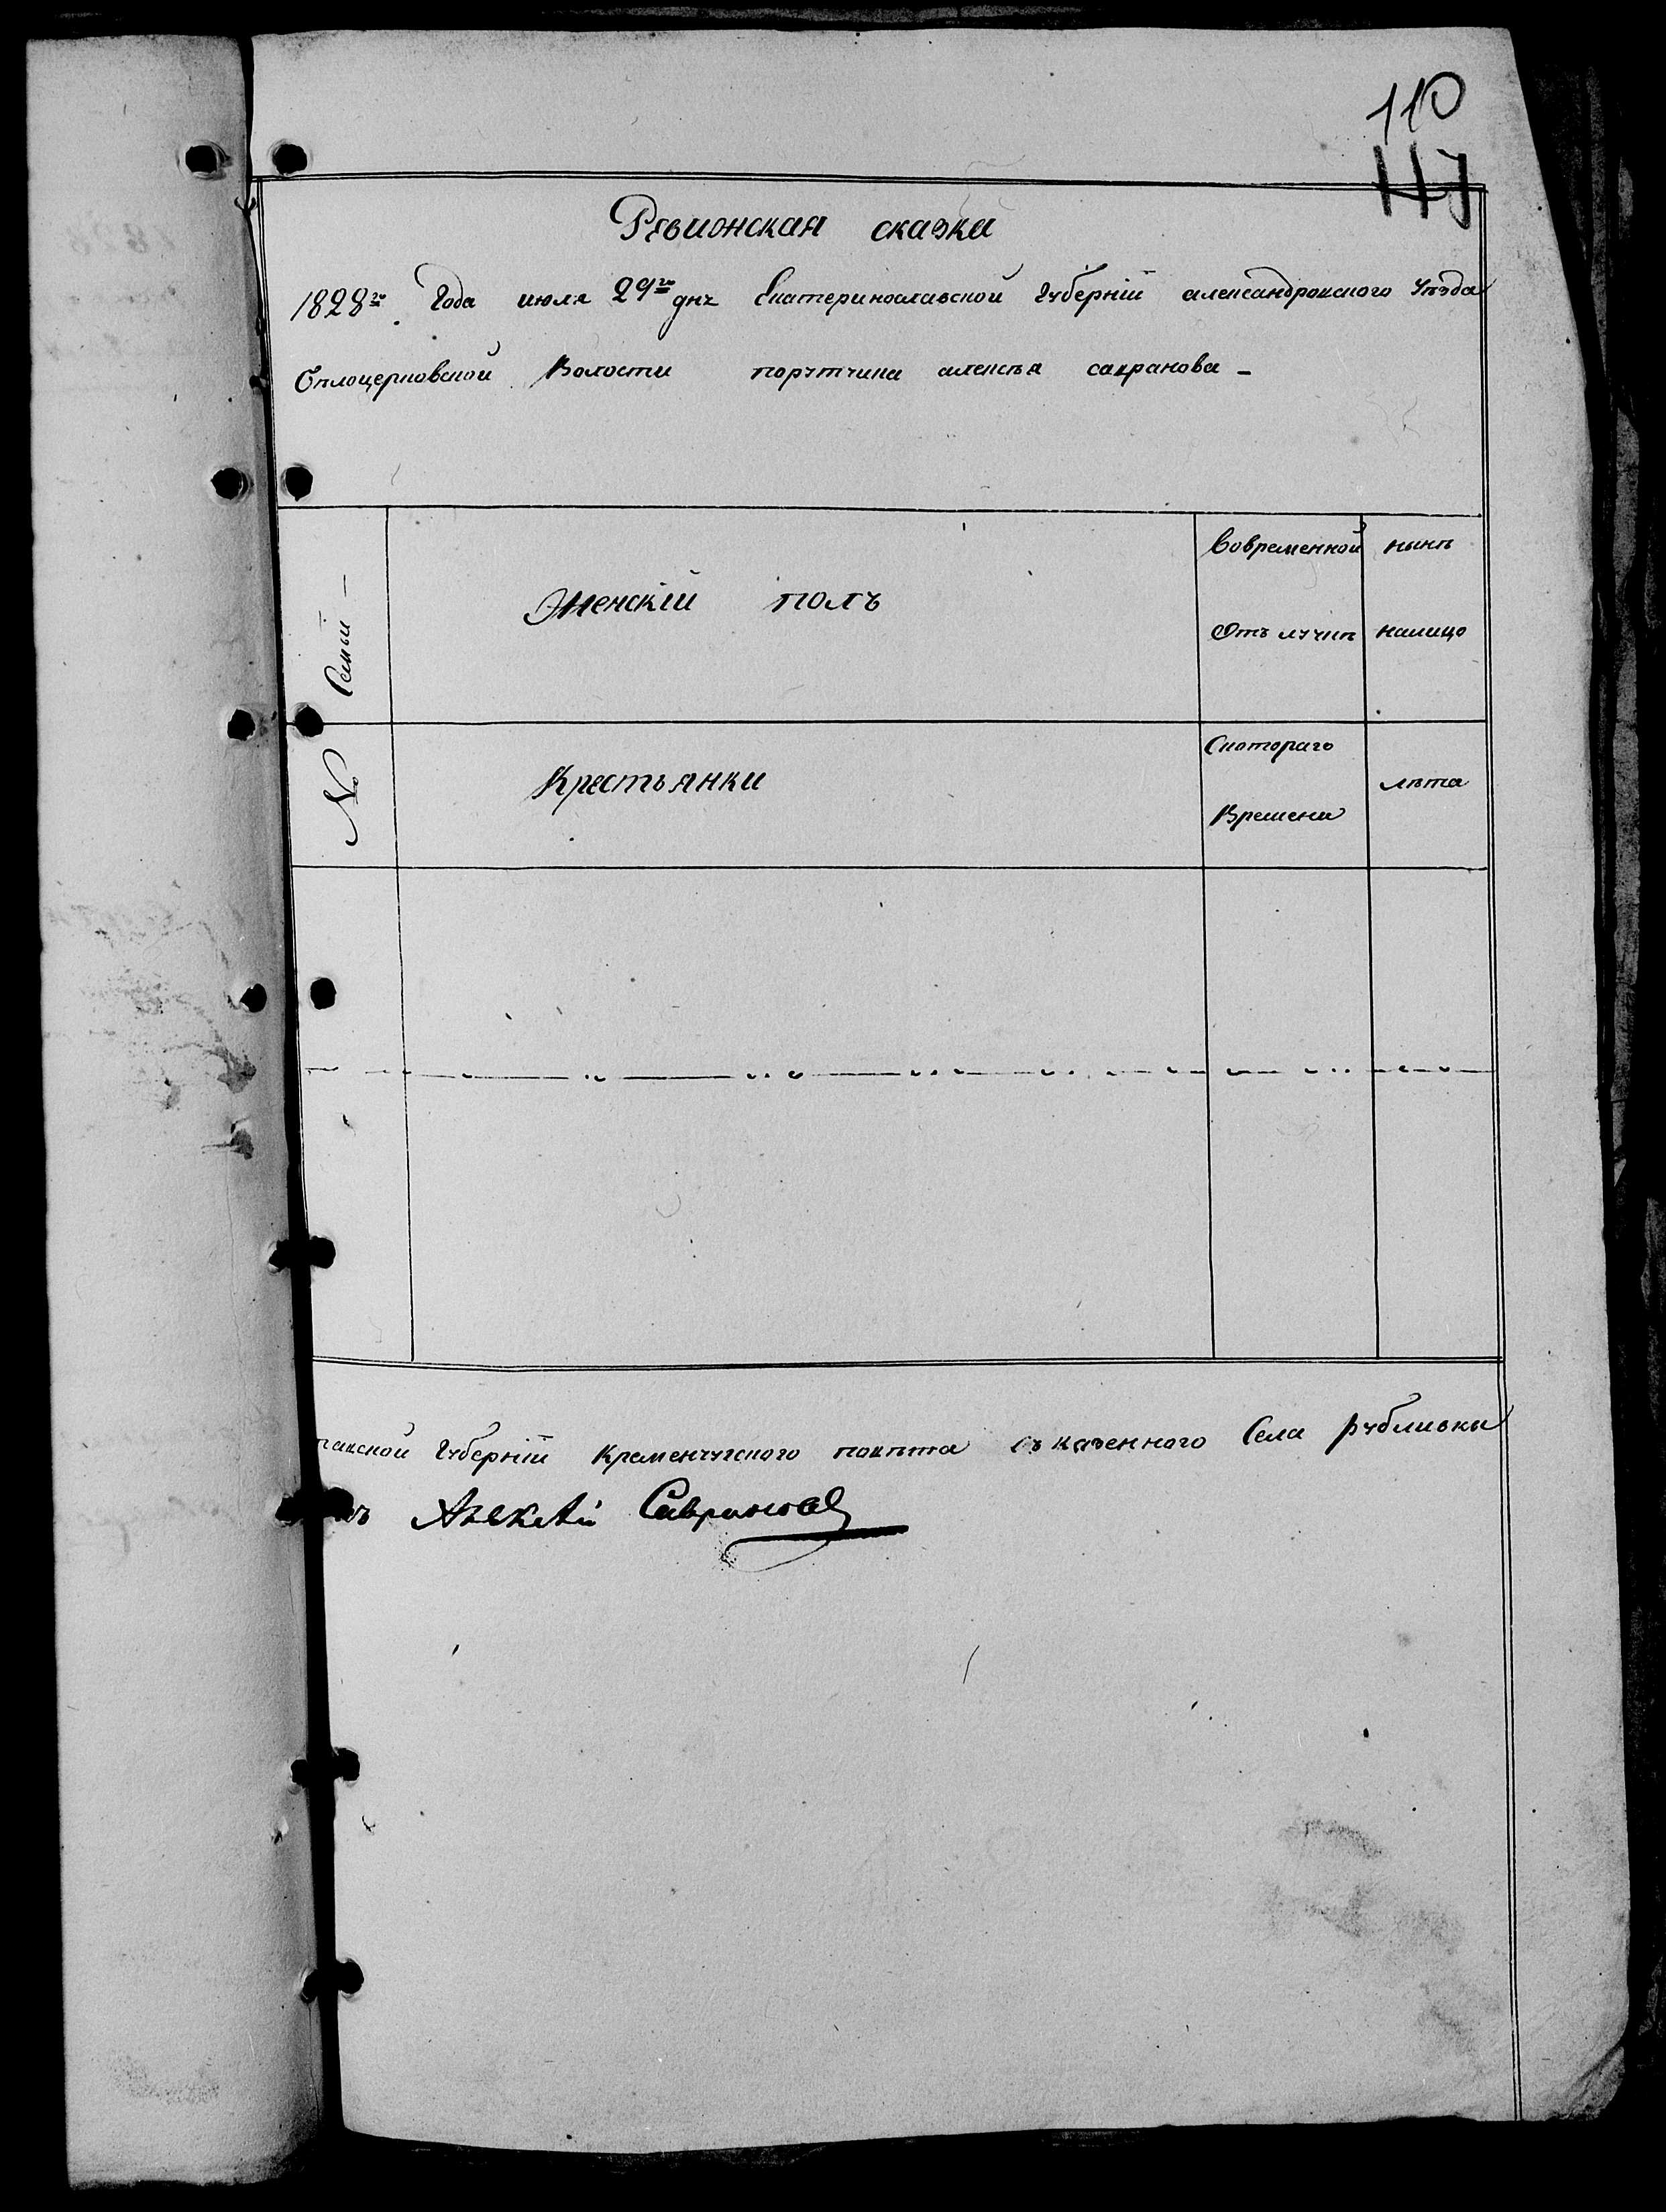 110
117
Ревизская сказка
1828го Года июля 29го дня Екатеринославской Губерніи александровского Уезда
Белоцерковской Волости порутчика алексея савранова -
Семьи —
Женскій полъ
вовременной
отълучке
ныне
налицо
№
Крестьянки
Скотораго
Времени
лета
тавской Губерніи Кременчугского повета съ казенного Села рубливки
Алексей Савранов